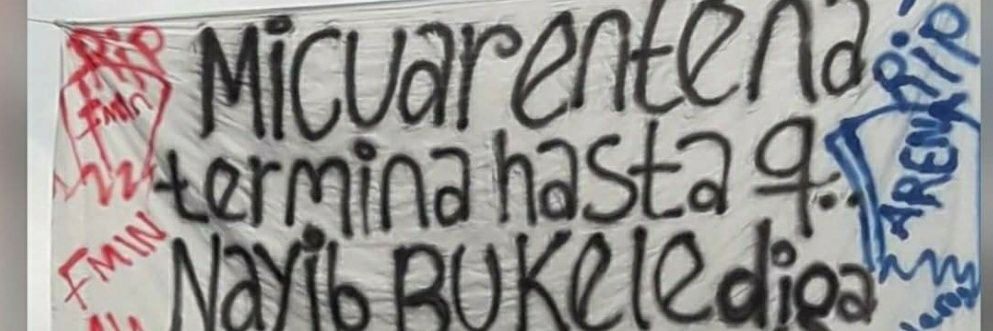 Mi cuarentena
termina hasta q..
Nayib BUKele diga
Rip
FMln
FMlN
Rip
ARENA